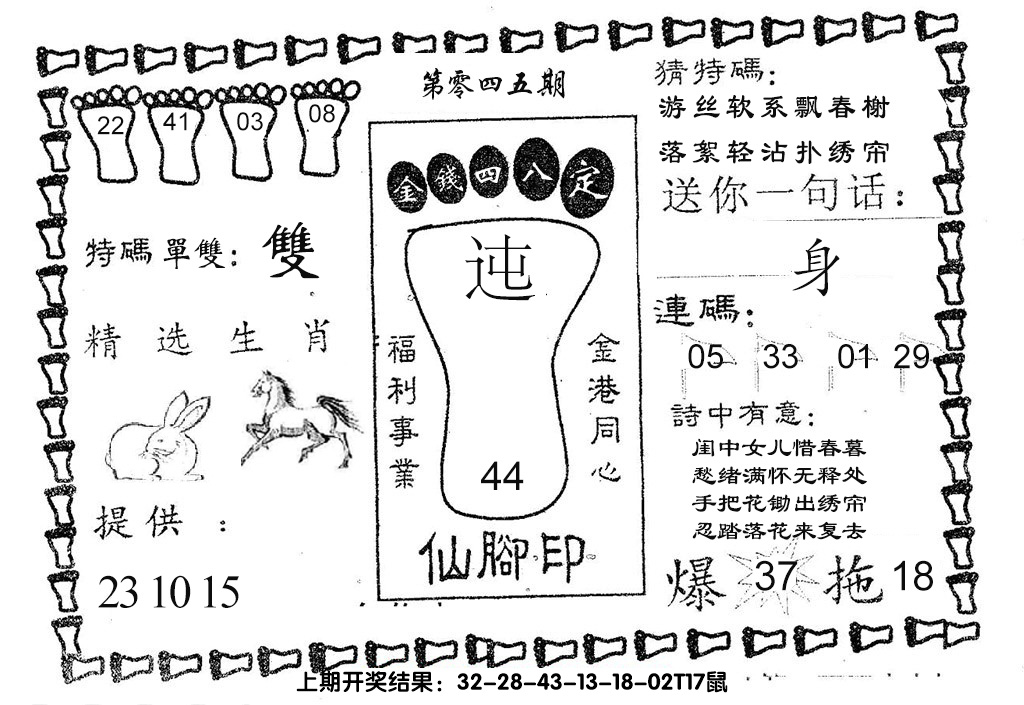 第零四五期
22 41 03 08
特碼單雙：雙
精选生肖
提供：
23 10 15
金錢四八定
迍
福利事業
金港同心
44
仙腳印
猜特碼：
游丝软系飘春榭
落絮轻沾扑绣帘
送你一句话：
身
連碼：
05 33 01 29
詩中有意：
闺中女儿惜春暮
愁绪满怀无释处
手把花锄出绣帘
忍踏落花来复去
爆 37 拖 18
上期开奖结果：32-28-43-13-18-02T17鼠